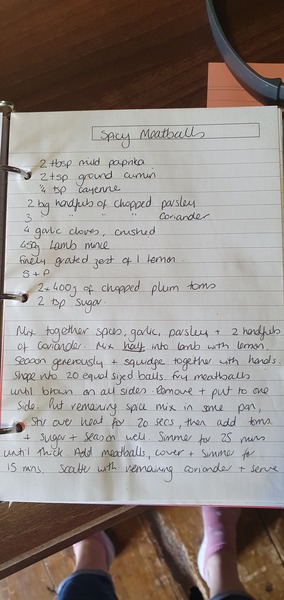 Spicy Meatballs
2 tbsp mild paprika
2 tsp ground cumin
¼ tsp cayenne
2 big handfuls of chopped parsley
3 " " " " coriander
4 garlic cloves, crushed
450g Lamb mince
finely grated zest of 1 lemon
S + P
2 x 400g of chopped plum toms
2 tsp sugar
Mix together spices, garlic, parsley + 2 handfuls
of coriander. Mix half into lamb with lemon.
Season generously + squidge together with hands.
Shape into 20 equal sized balls. Fry meatballs
until brown on all sides. Remove + put to one
side. Put remaining spice mix in same pan,
Stir over heat for 20 secs, then add toms
+ sugar + season well. Simmer for 25 mins
until thick. Add meatballs, cover + simmer for
15 mns. Scatter with remaining coriander + serve